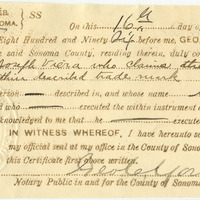 ia
SS
OMA.
On this 16th day of
Eight Hundred and Ninety before me, GEO
said Sonoma County, residing therein, duly co
Joseph who claims the
described trade mark
erson described in, and whose name
d who executed the within instrument
knowledged to me that he executed
IN WITNESS WHEREOF, I have hereunto s
my official seal at my office in the County of Son
this Certificate first above written.
Notary Public in and for the County of Sonoma